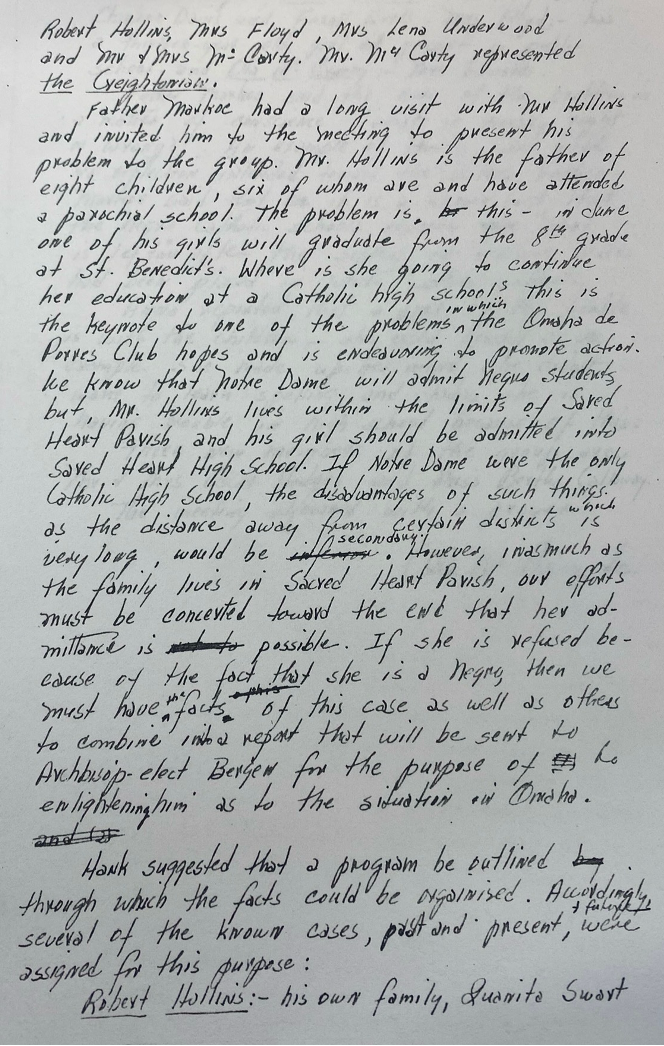 Robert Hollins, Mrs Floyd, Mrs Lena Underwood
and Mr & Mrs Mc Carty. Mr. Mc Carty represented
the Creightonian.
Father Markoe had a long visit with Mr Hollins
and invited him to the meeting to present his
problem to the group. Mr. Hollins is the father of
eight children, six of whom are and have attended
a parochial school. The problem is, this - in June
one of his girls will graduate from the 8th grade
at St. Benedict's. Where is she going to continue
her education at a Catholic high school? This is
the keynote to one of the problems in which the Omaha de
Porres Club hopes and is endeavoring to promote action.
We know that Notre Dame will admit Negro students
but, Mr. Hollins lives within the limits of Sacred
Heart Parish, and his girl should be admitted into
Sacred Heart High School. If Notre Dame were the only
Catholic High School, the disadvantages of such things.
as the distance away from certain districts which is
very long, would be inferior secondary. However, inasmuch as
the family lives in Sacred Heart Parish, our efforts
must be concerted toward the end that her ad-
mittance is possible. If she is refused be-
cause of the fact that she is a Negro, then we
must have the facts of this case as well as others
to combine into a report that will be sent to
Archbisop-elect Bergen for the purpose of to
enlightening him as to the situation in Omaha.
and (2)
Hank suggested that a program be outlined by
through which the facts could be orgainised. Accordingly,
several of the known cases, past and present, & future, were
assigned for this purpose:
Robert Hollins:- his own family, Quanita Swart